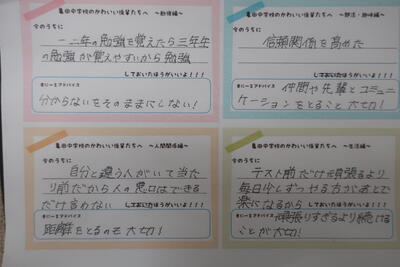 亀田中学校のかわいい後輩たちへ ～勉強編～
今のうちに
一、二年の勉強を覚えたら三年生
の勉強が覚えやすいから勉強
しておいたほうがいいよ！！！
先パイアドバイス
分からないをそのままにしない！
亀田中学校のかわいい後輩たちへ ～部活・趣味編～
今のうちに
信頼関係を高めた
しておいたほうがいいよ！！！
仲間や先輩とコミュニ
ケーションをとること大切！
亀田中学校のかわいい後輩たちへ ～人間関係編～
今のうちに
自分と違う人がいて当た
り前だから人の悪口はできる
だけ言わない
しておいたほうがいいよ！！！
距離をとるのも大切！
亀田中学校のかわいい後輩たちへ ～生活編～
今のうちに
テスト前だけ頑張るより
毎日少しずつやる方があとで
楽になるから
しておいたほうがいいよ！！！
頑張りすぎるより続ける
ことが大切！